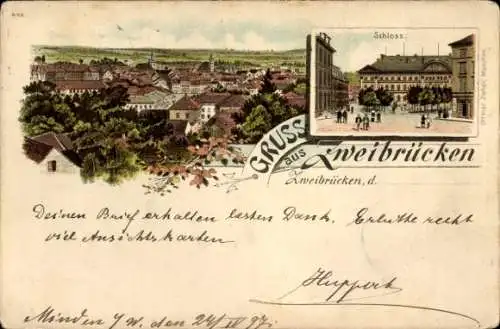 Schloss.
GRUSS
aus
Zweibrücken
Zweibrücken, d.
Deinen Brief erhalten besten Dank. Erbitte recht
viel Ansichtskarten
Huppert
Minden i/W. den 24/IV 97.